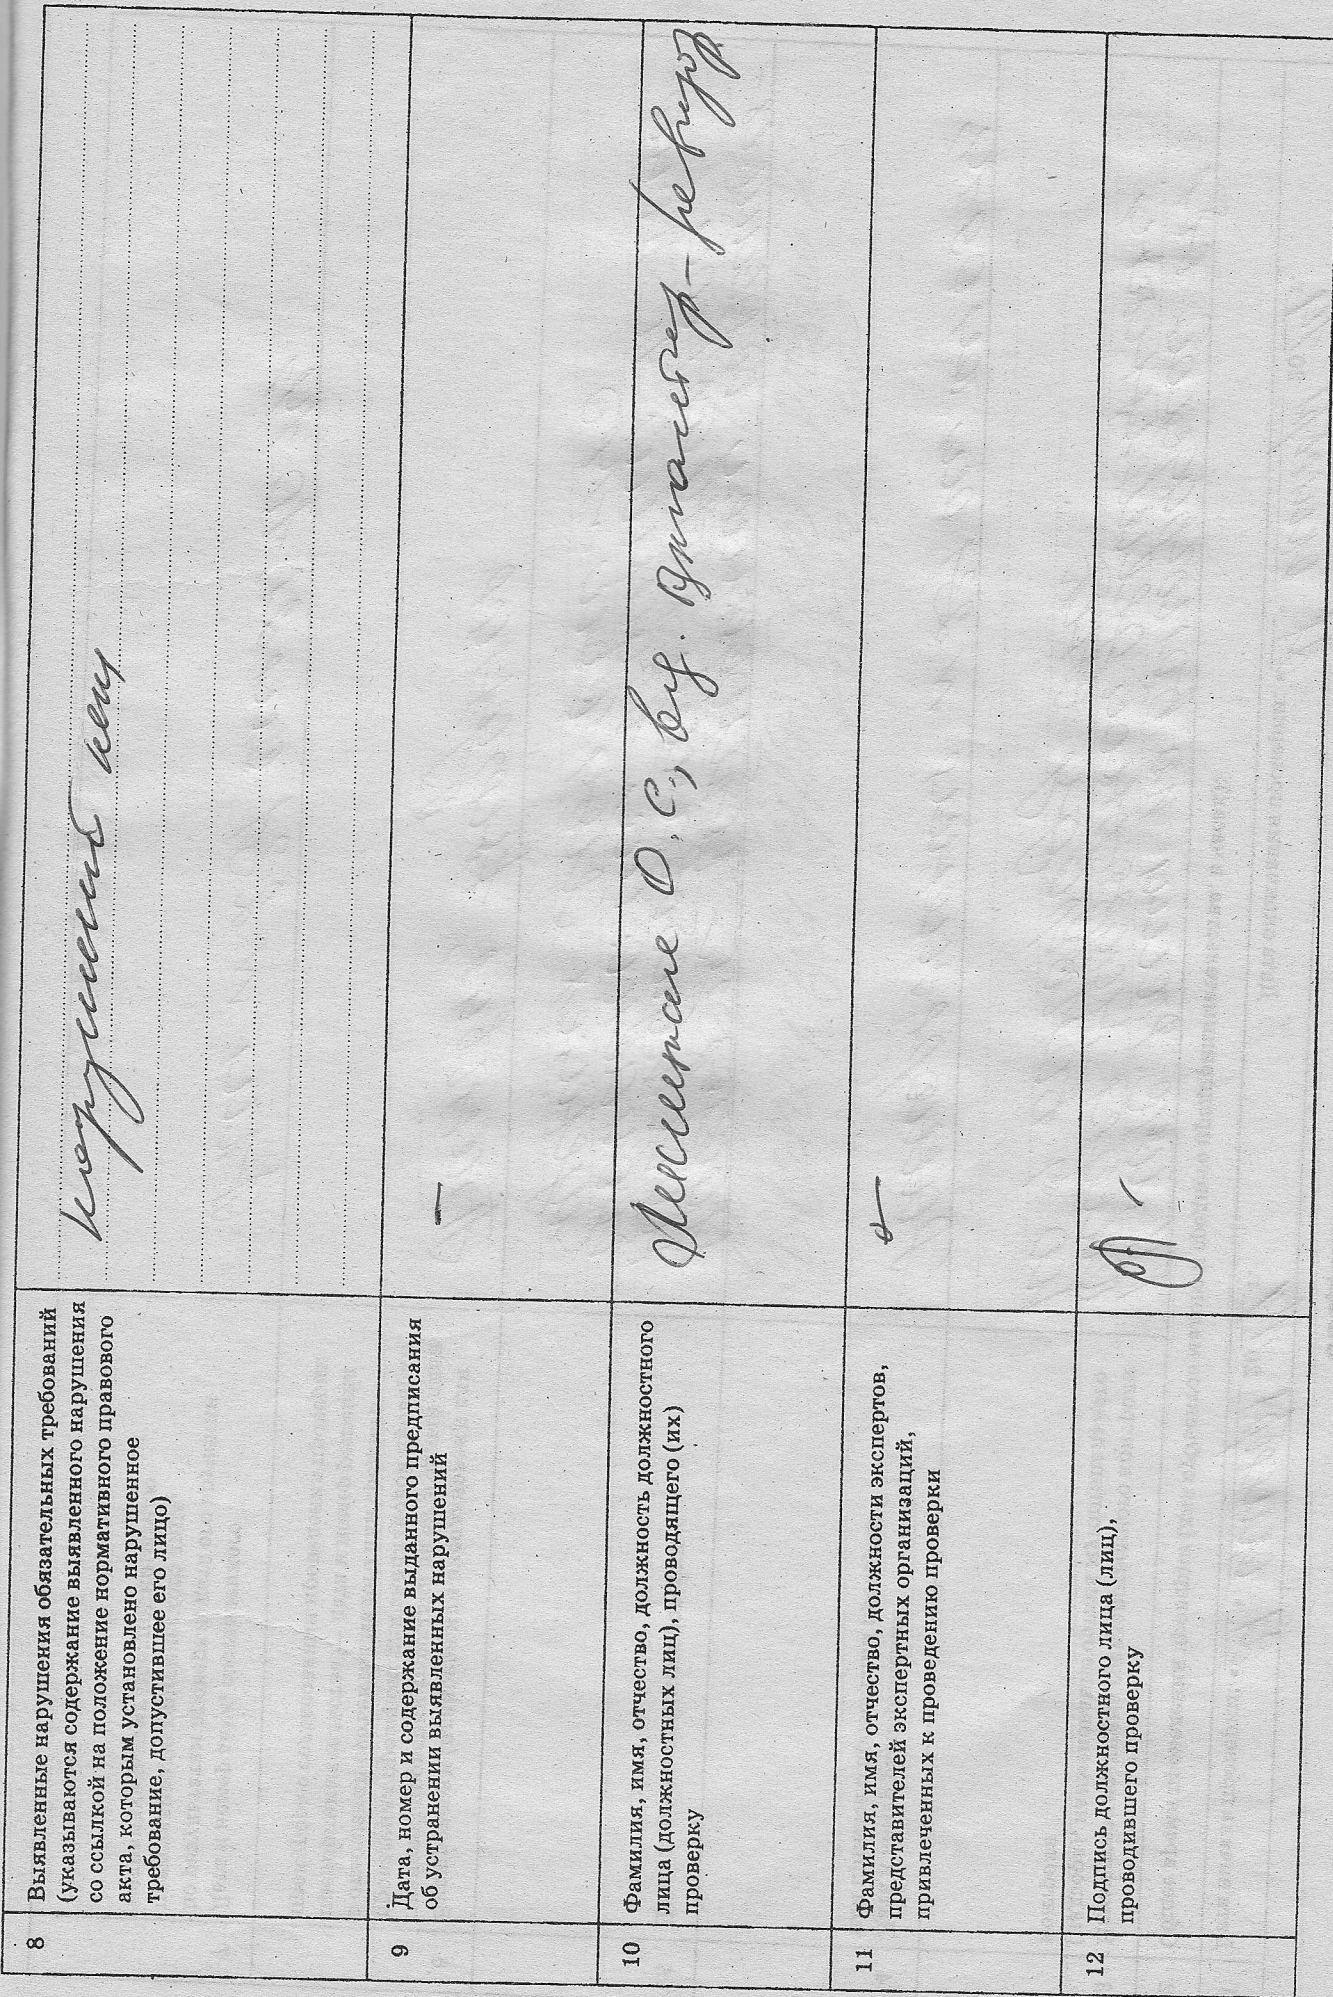 8
Выявленные нарушения обязательных требований
(указываются содержание выявленного нарушения
со ссылкой на положение нормативного правового
акта, которым установлено нарушенное
требование, допустившее его лицо)
нарушений нет
9
Дата, номер и содержание выданного предписания
об устранении выявленных нарушений
—
10
Фамилия, имя, отчество, должность должностного
лица (должностных лиц), проводящего (их)
проверку
О.С., вед. бухгалтер-ревизор
11
Фамилия, имя, отчество, должности экспертов,
представителей экспертных организаций,
привлеченных к проведению проверки
—
12
Подпись должностного лица (лиц),
проводившего проверку